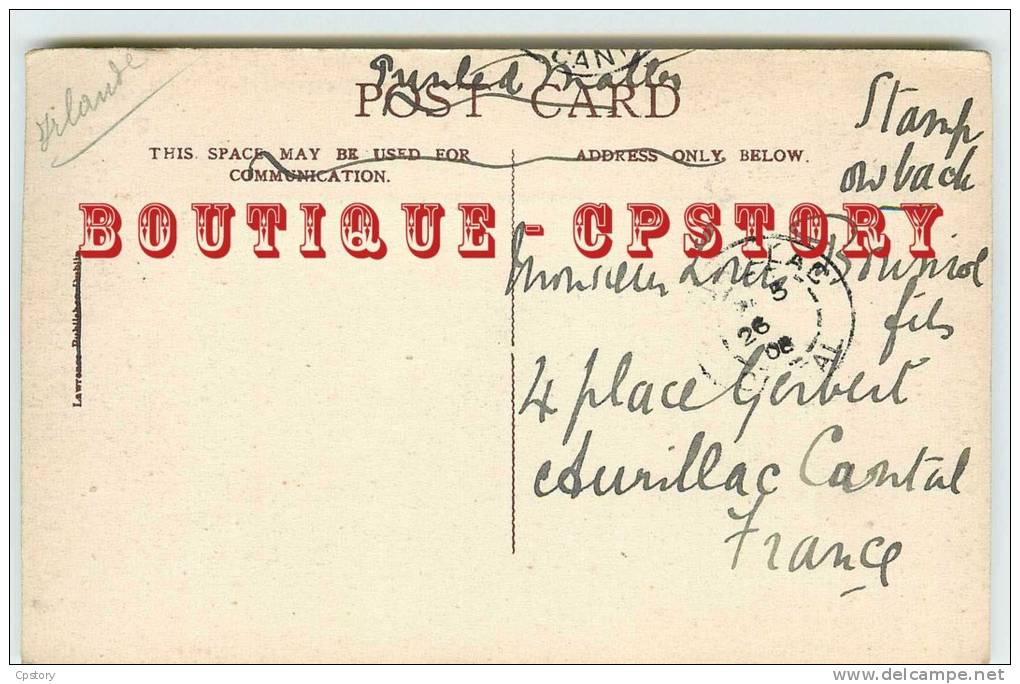 Irlande
Printed Matter
CANT
POST CARD
Stamp
on back
THIS SPACE MAY BE USED FOR
COMMUNICATION.
ADDRESS ONLY, BELOW.
BOUTIQUE - CPSTORY
Monsieur Louis
fils
4 place Gerbert
Aurillac Cantal
France
5
26
08
Lawrence Publisher Dublin
Cpstory
www.delcampe.net